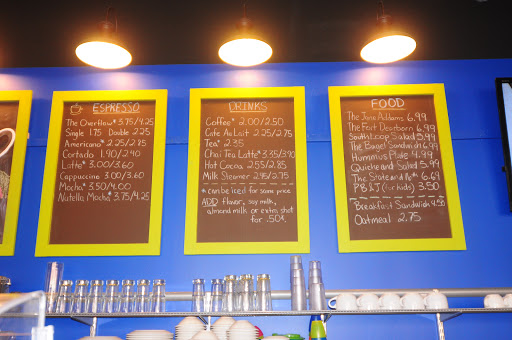 ESPRESSO
The Overflow* 3.75/4.25
Single 1.75 Double 2.25
Americano* 2.25/2.95
Cortado 1.90/2.40
Latte* 3.00/3.60
Cappuccino 3.00/3.60
Mocha* 3.50/4.00
Nutella Mocha* 3.75/4.25
DRINKS
Coffee* 2.00/2.50
Cafe Au Lait 2.25/2.75
Tea* 2.35
Chai Tea Latte* 3.35/3.90
Hot Cocoa 2.55/2.85
Milk Steamer 2.45/2.75
* can be iced for same price
ADD flavor, soy milk,
almond milk or extra shot
for .50¢.
FOOD
The Jane Addams 6.99
The Fort Dearborn 6.99
South Loop Salad 5.99
The Bagel Sandwich 6.99
Hummus Plate 4.99
Quiche and Salad 5.99
The State and 6.69
PB&J (for kids) 3.50
Breakfast Sandwich 4.50
Oatmeal 2.75